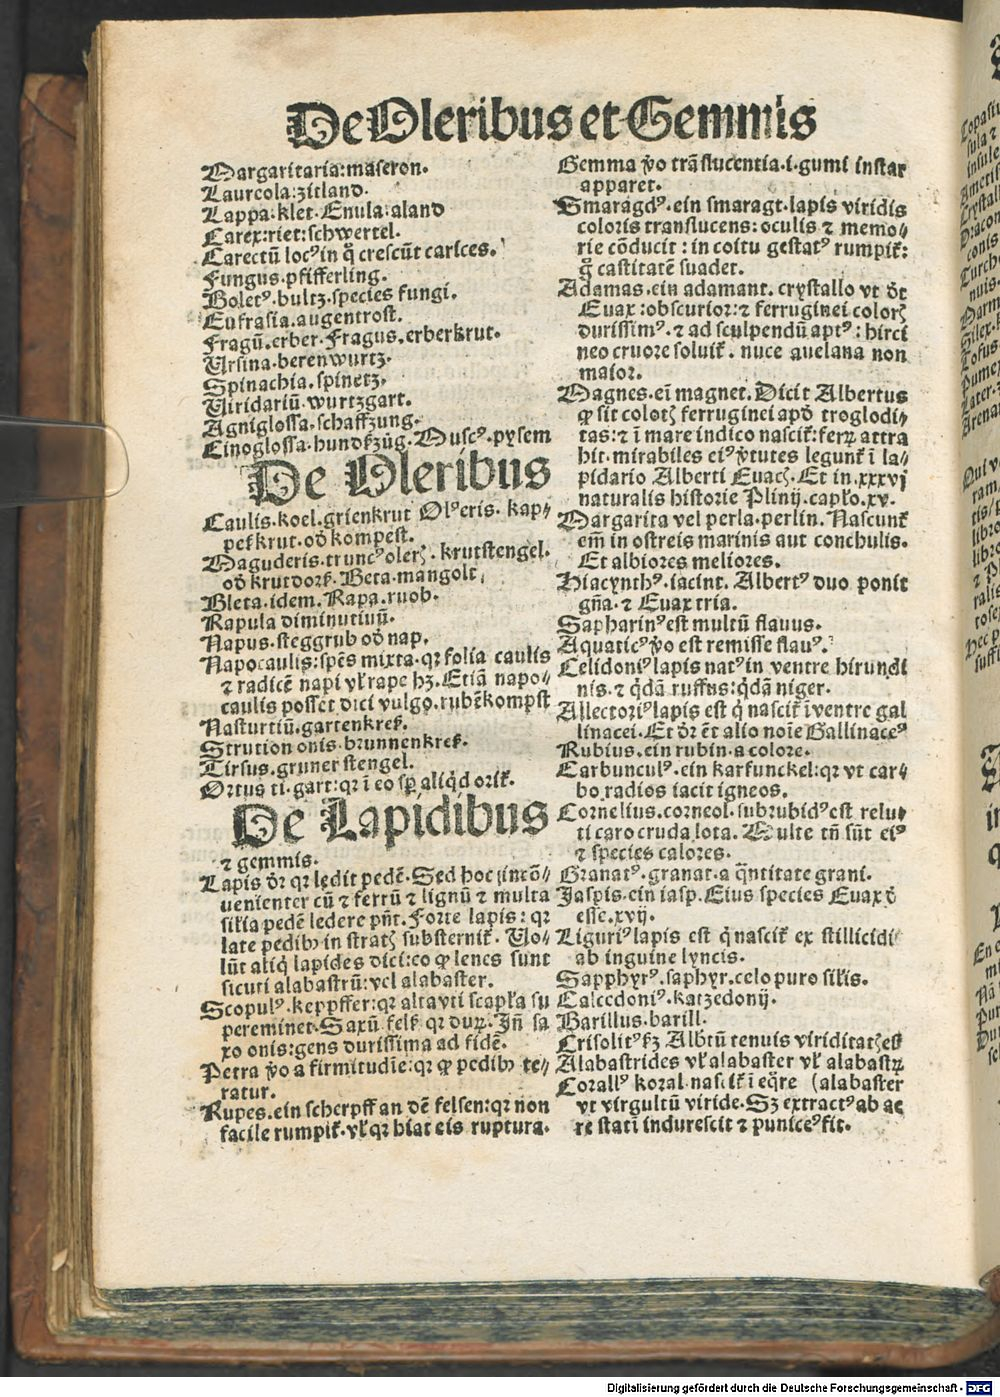 De Oleribus et Gemmis
Margaritaria:maseron.
Laureola:zitland.
Lappa:klet. Enula:aland
Carex:riet:schwertel.
Carectū locꝰ in q̊ crescūt carices.
Fungus.pfifferling.
Boletꝰ.bultz.species fungi.
Eufrasia.augentrost.
Fragū.erber.Fragus.erberkrut.
Ursina.berenwurtz.
Spinachia.spinetz.
Viridariū.wurtzgart.
Agniglossa.schaffzung.
Cinoglossa.hundßzūg.Muscꝰ.pysem
De Oleribus
Caulis.koel.grienkrut Olꝰeris. kap⸗
peßkrut.oď kompest.
Maguderis.truncꝰ olerꝝ. krutstengel.
oď krutdorß. Beta.mangolt
Bleta.idem. Rapa.ruob.
Rapula diminutiuū.
Napus.steggrub oď nap.
Napocaulis:spēs mixta.qꝛ folia caulis
⁊ radicē napi vł rape hꝫ. Etiā napo⸗
caulis posset dici vulgo.rubēkompst
Nasturtiū.gartenkreß.
Strution onis.brunnenkreß.
Tirsus.gruner stengel.
Ortus ti.gart:qꝛ ī eo sꝑ aliqd orit᷑.
De Lapidibus
⁊ gemmis.
Lapis dr̄ qꝛ ledit pedē. Sed hoc incō⸗
uenienter cū ⁊ ferrū ⁊ lignū ⁊ multa
silia pedē ledere pn̄t. Forte lapis: qꝛ
late pedibꝫ in stratꝭ substernit᷑. Vo⸗
lūt aliq̇ lapides dici:eo ꝙ lenes sunt
sicuti alabastrū:vel alabaster.
Scopulꝰ.keppffer:qꝛ alta vti scapła su
pereminet.Saxū felß qꝛ durꝝ. Iñ sa
xo onis:gens durissima ad fidē.
Petra v̊o a firmitudīe:qꝛ ꝙ pedibꝫ te⸗
ratur.
Rupes.ein scherpff an dē felsen:qꝛ non
facile rumpit᷑.vł qꝛ hiat eis ruptura.
Gemma v̊o trāslucentia.i.gumi instar
apparet.
Smaragdꝰ.ein smaragt.lapis viridis
coloris translucens:oculis ⁊ memo⸗
rie cōducit:in coitu gestatꝰ rumpit᷑:
q̊ castitatē suadet.
Adamas.ein adamant. crystallo vt dt̄
Euax:obscurior:⁊ ferruginei colorꝭ
durissimꝰ.⁊ ad sculpendū aptꝰ:hirci
neo cruore soluit᷑. nuce auelana non
maior.
Magnes.eī magnet. Dicit Albertus
ꝙ sit colorꝭ ferruginei apd̄ troglodi⸗
tas:⁊ ī mare indico nascit᷑:ferꝝ attra
hit.mirabiles eiꝰ v̊tutes legunt᷑ ī la⸗
pidario Alberti Euacꝭ. Et in.xxxvj
naturalis historie Plinij.capło.xv.
Margarita vel perla.perlin. Nascunt᷑
em̄ in ostreis marinis aut conchulis.
Et albiores meliores.
Hiacynthꝰ.iacint. Albertꝰ duo ponit
gn̄a.⁊ Euax tria.
Sapharinꝰ est multū flauus.
Aquaticꝰ v̊o est remisse flauꝰ.
Celidoniꝰ lapis natꝰ in ventre hirundi
nis.⁊ qdā ruffus:qdā niger.
Allectoriꝰ lapis est q̇ nascit᷑ ī ventre gal
linacei. Et dr̄ et̄ alio noīe Gallinaceꝰ
Rubius.ein rubin.a colore.
Carbunculꝰ.ein karfunckel:qꝛ vt car⸗
bo radios iacit igneos.
Cornelius.corneol.subrubidꝰ est velu⸗
ti caro cruda lota. Multe tn̄ sūt eiꝰ
⁊ species calores.
Granatꝰ.granat.a q̄ntitate grani.
Jaspis.ein iasp. Eius species Euax d̄
esse.xvij.
Liguriꝰ lapis est q̇ nascit᷑ ex stillicidi
ab inguine lyncis.
Sapphyrꝰ.saphyr.celo puro silis.
Calcedoniꝰ.katzedonij.
Barillus.barill.
Crisolitꝰ ßꝫ Albtū tenuis viriditatꝭ est
Alabastrides vł alabaster vł alabastꝝ
Corallꝰ koral.nascit᷑ ī eq̄re (alabaster
vt virgultū viride.Sꝫ extractꝰ ab ae
re statī indurescit ⁊ puniceꝰ fit.
Digitalisierung gefördert durch die Deutsche Forschungsgemeinschaft - DFG